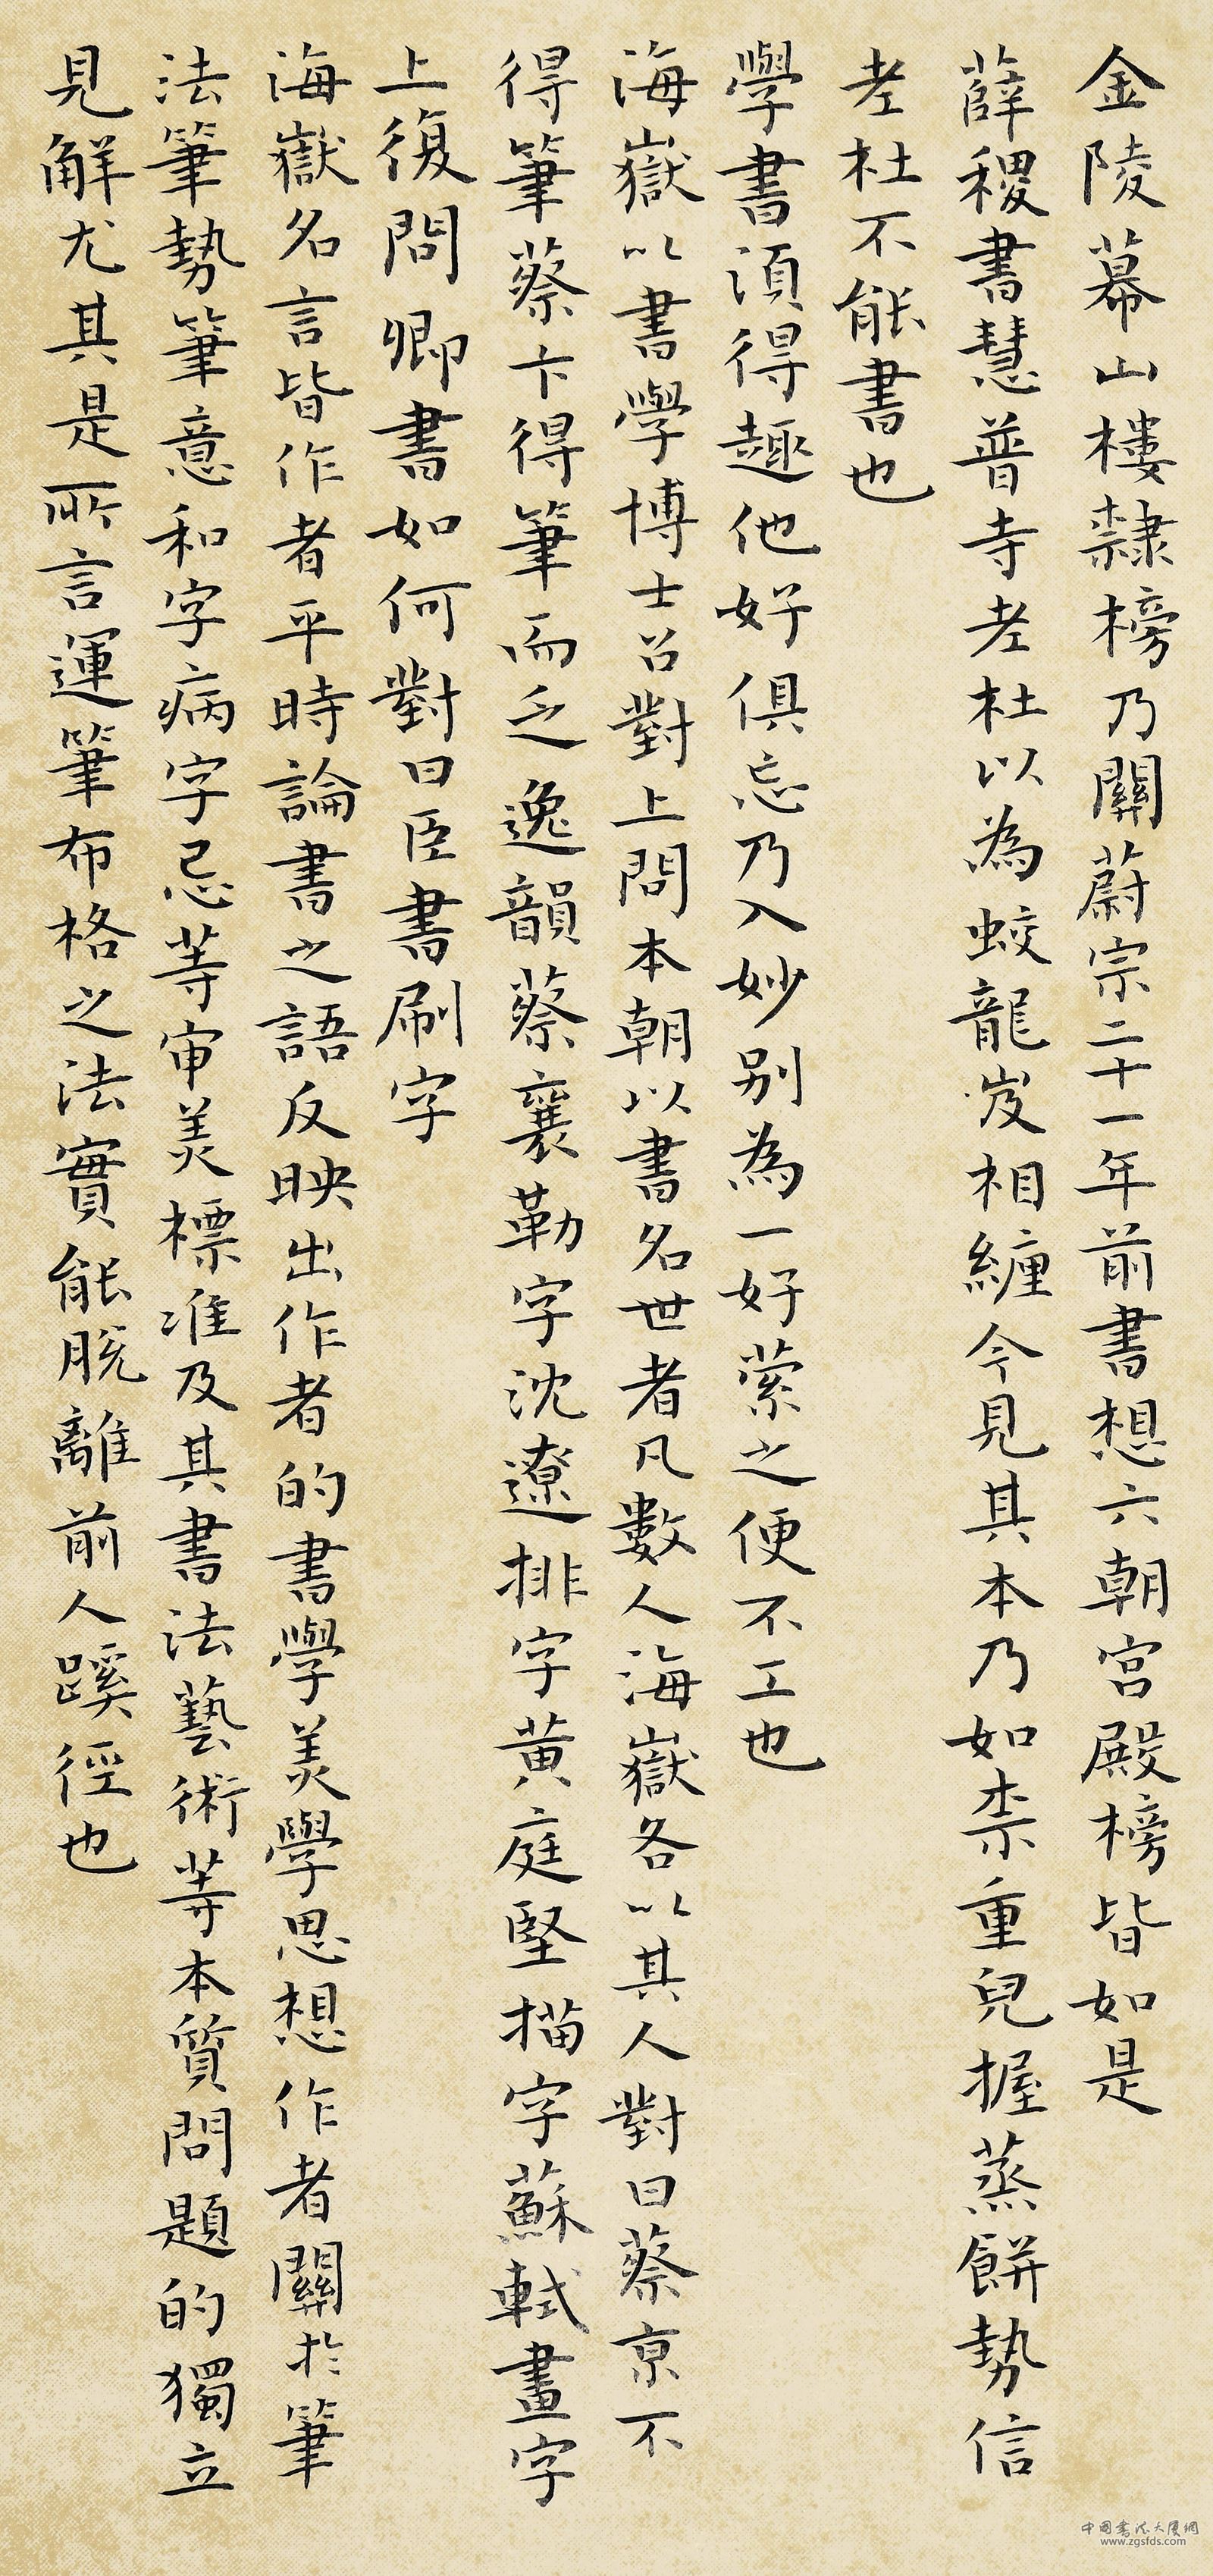 金陵幕山樓隸榜乃關蔚宗二十一年前書想六朝宮殿榜皆如是
薛稷書慧普寺老杜以為蛟龍岌相纏今見其本乃如柰重兒握蒸餅勢信
老杜不能書也
學書須得趣他好俱忘乃入妙別為一好縈之便不工也
海嶽以書學博士召對上問本朝以書名世者凡數人海嶽各以其人對曰蔡京不
得筆蔡卞得筆而乏逸韻蔡襄勒字沈遼排字黃庭堅描字蘇軾畫字
上復問卿書如何對曰臣書刷字
海嶽名言皆作者平時論書之語反映出作者的書學美學思想作者關於筆
法筆勢筆意和字病字忌等审美標准及其書法藝術等本質問題的獨立
見解尤其是所言運筆布格之法實能脫離前人蹊徑也
中國書法大廈網
www.zgsfds.com